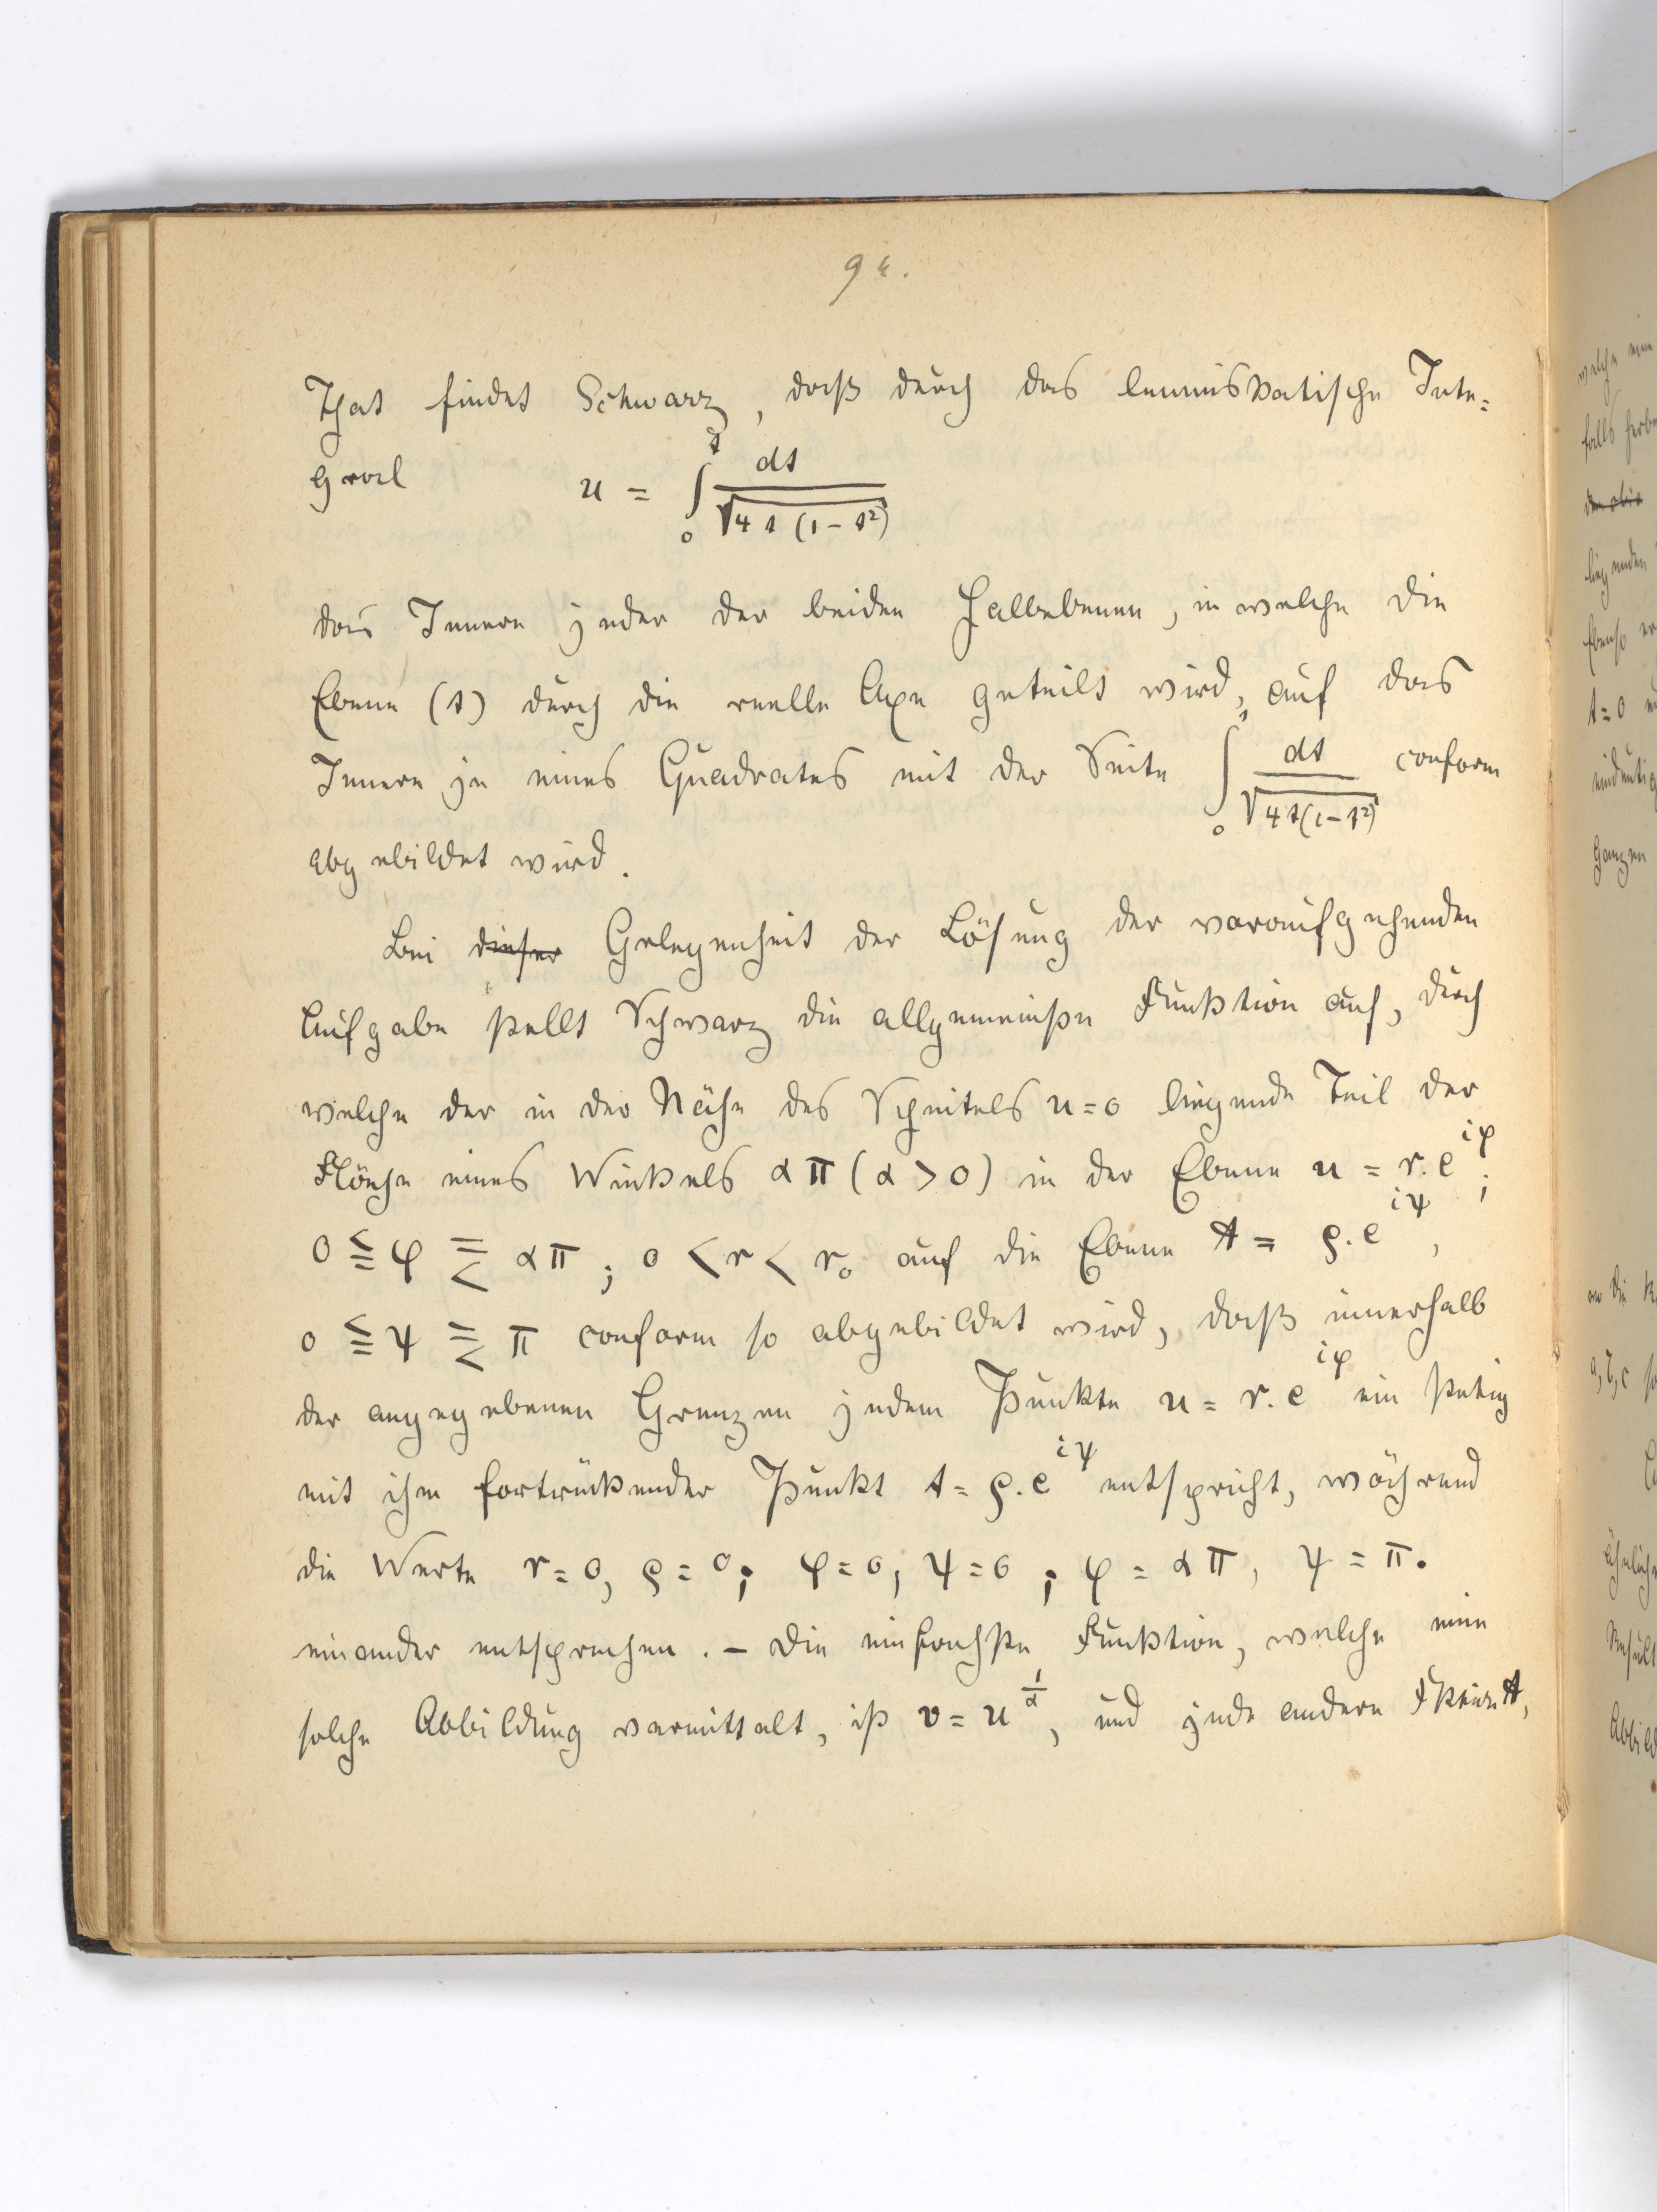 94.
That findet Schwarz, daß durch das lemniskatische Inte=
gral u = ∫₀ᵗ dt / √(4t(1-t²))
das Innere jeder der beiden Halbebenen, in welche die
Ebene (t) durch die reelle Axe geteilt wird, auf das
Innere je eines Quadrates mit der Seite ∫₀¹ dt / √(4t(1-t²)) conform
abgebildet wird.
Bei dieser Gelegenheit der Lösung der voraufgehenden
Aufgabe stellt Schwarz die allgemeinste Funktion auf, durch
welche der in der Nähe des Scheitels u=0 liegende Teil der
Fläche eines Winkels απ (α > 0) in der Ebene u = r.e^{iφ};
0 ≦ φ ≦ απ; 0 < r < r₀ auf die Ebene t = ρ.e^{iψ},
0 ≦ ψ ≦ π conform so abgebildet wird, daß innerhalb
der angegebenen Grenzen jedem Punkte u = r.e^{iφ} ein stetig
mit ihm fortrückender Punkt t = ρ.e^{iψ} entspricht, während
die Werte r=0, ρ=0; φ=0, ψ=0; φ = απ, ψ = π.
einander entsprechen. – Die einfachste Funktion, welche eine
solche Abbildung vermittelt, ist v = u^{1/α}, und jede andere Fktion t,